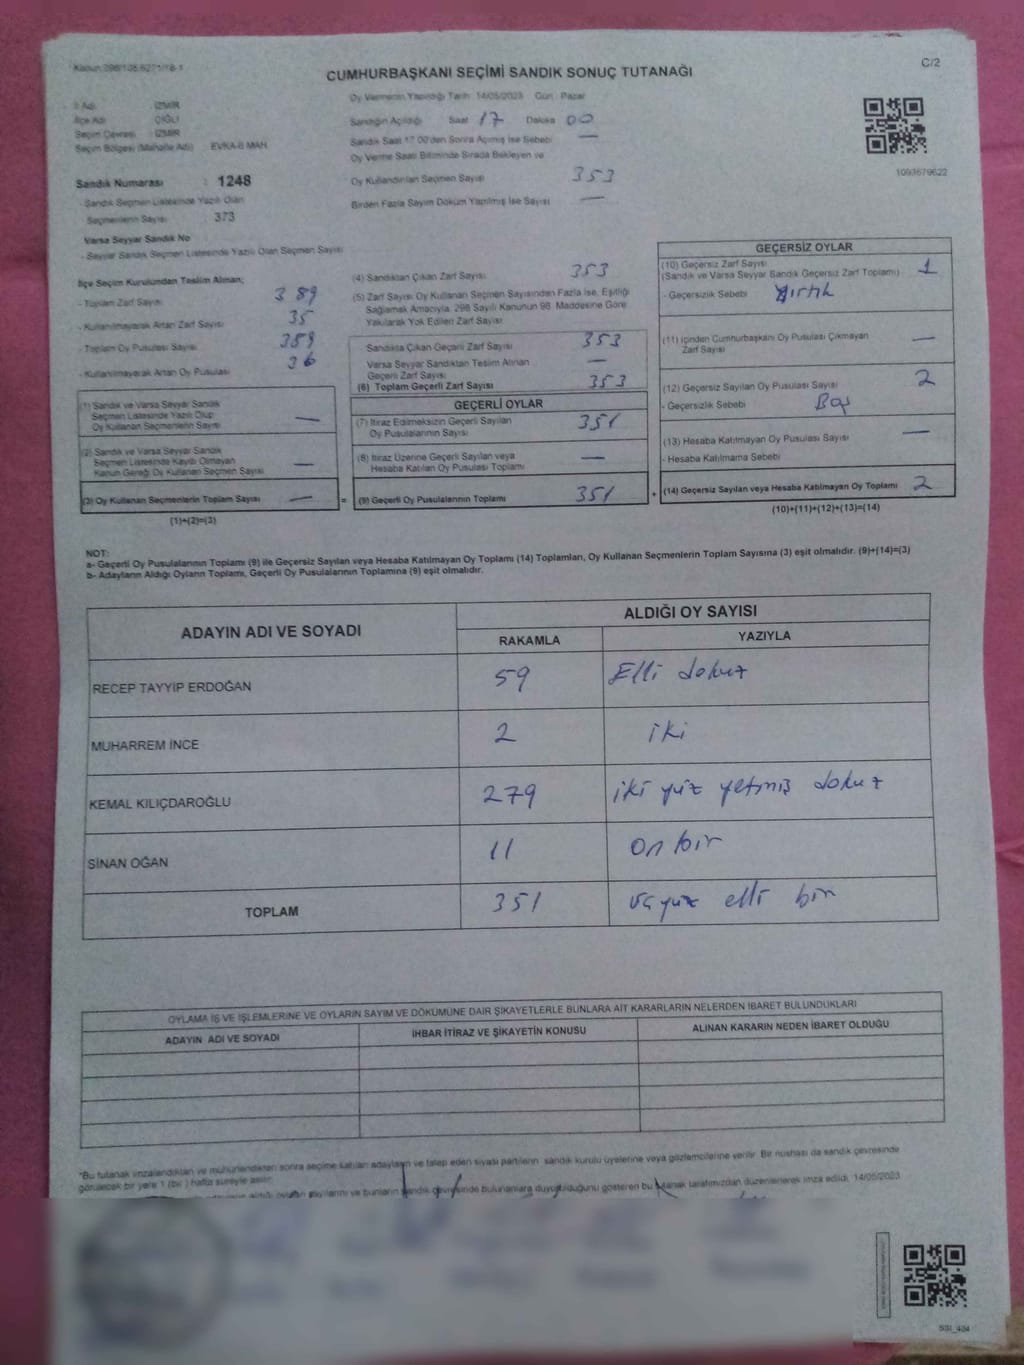 Kanun:298/105,6271/18-1
C/2
CUMHURBAŞKANI SEÇİMİ SANDIK SONUÇ TUTANAĞI
Oy Vermenin Yapıldığı Tarih 14/05/2023 Gün : Pazar
İl Adı : İZMİR
İlçe Adı : ÇİĞLİ
Seçim Çevresi : İZMİR
Seçim Bölgesi (Mahalle Adı) EVKA-6 MAH.
Sandık Numarası : 1248
- Sandık Seçmen Listesinde Yazılı Olan
Seçmenlerin Sayısı : 373
Varsa Seyyar Sandık No
- Seyyar Sandık Seçmen Listesinde Yazılı Olan Seçmen Sayısı
Sandığın Açıldığı Saat 17 Dakika 00
Sandık Saat 17.00'den Sonra Açılmış İse Sebebi —
Oy Verme Saati Bitiminde Sırada Bekleyen ve
Oy Kullandırılan Seçmen Sayısı 353
Birden Fazla Sayım Döküm Yapılmış İse Sayısı —
1093679622
İlçe Seçim Kurulundan Teslim Alınan;
- Toplam Zarf Sayısı 389
- Kullanılmayarak Artan Zarf Sayısı 35
- Toplam Oy Pusulası Sayısı 389
- Kullanılmayarak Artan Oy Pusulası 36
(1) Sandık ve Varsa Seyyar Sandık
Seçmen Listesinde Yazılı Olup
Oy Kullanan Seçmenlerin Sayısı —
(2) Sandık ve Varsa Seyyar Sandık
Seçmen Listesinde Kayıtlı Olmayan
Kanun Gereği Oy Kullanan Seçmen Sayısı —
(3) Oy Kullanan Seçmenlerin Toplam Sayısı —
(1)+(2)=(3)
=
(4) Sandıktan Çıkan Zarf Sayısı 353
(5) Zarf Sayısı Oy Kullanan Seçmen Sayısından Fazla İse, Eşitliği
Sağlamak Amacıyla, 298 Sayılı Kanunun 98. Maddesine Göre
Yakılarak Yok Edilen Zarf Sayısı
Sandıkta Çıkan Geçerli Zarf Sayısı 353
Varsa Seyyar Sandıktan Teslim Alınan
Geçerli Zarf Sayısı —
(6) Toplam Geçerli Zarf Sayısı 353
GEÇERLİ OYLAR
(7) İtiraz Edilmeksizin Geçerli Sayılan
Oy Pusulalarının Sayısı 351
(8) İtiraz Üzerine Geçerli Sayılan veya
Hesaba Katılan Oy Pusulası Toplamı —
(9) Geçerli Oy Pusulalarının Toplamı 351
+
GEÇERSİZ OYLAR
(10) Geçersiz Zarf Sayısı
(Sandık ve Varsa Seyyar Sandık Geçersiz Zarf Toplamı) 1
- Geçersizlik Sebebi Yırtık
(11) İçinden Cumhurbaşkanı Oy Pusulası Çıkmayan
Zarf Sayısı —
(12) Geçersiz Sayılan Oy Pusulası Sayısı 2
- Geçersizlik Sebebi Boş
(13) Hesaba Katılmayan Oy Pusulası Sayısı —
- Hesaba Katılmama Sebebi
(14) Geçersiz Sayılan veya Hesaba Katılmayan Oy Toplamı 2
(10)+(11)+(12)+(13)=(14)
NOT:
a- Geçerli Oy Pusulalarının Toplamı (9) ile Geçersiz Sayılan veya Hesaba Katılmayan Oy Toplamı (14) Toplamları, Oy Kullanan Seçmenlerin Toplam Sayısına (3) eşit olmalıdır. (9)+(14)=(3)
b- Adayların Aldığı Oyların Toplamı, Geçerli Oy Pusulalarının Toplamına (9) eşit olmalıdır.
ADAYIN ADI VE SOYADI
ALDIĞI OY SAYISI
RAKAMLA YAZIYLA
RECEP TAYYİP ERDOĞAN 59 Elli dokuz
MUHARREM İNCE 2 iki
KEMAL KILIÇDAROĞLU 279 iki yüz yetmiş dokuz
SİNAN OĞAN 11 on bir
TOPLAM 351 üçyüz elli bir
OYLAMA İŞ VE İŞLEMLERİNE VE OYLARIN SAYIM VE DÖKÜMÜNE DAİR ŞİKAYETLERLE BUNLARA AİT KARARLARIN NELERDEN İBARET BULUNDUKLARI
ADAYIN ADI VE SOYADI İHBAR İTİRAZ VE ŞİKAYETİN KONUSU ALINAN KARARIN NEDEN İBARET OLDUĞU
*Bu tutanak imzalandıktan ve mühürlendikten sonra seçime katılan adayların ve talep eden siyasi partilerin sandık kurulu üyelerine veya gözlemcilerine verilir. Bir nüshası da sandık çevresinde
görülecek bir yere 1 (bir) hafta süreyle asılır.
aldığı oyların sayılarını ve bunların sandık çevresinde bulunanlara duyurulduğunu gösteren bu tutanak tarafımızdan düzenlenerek imza edildi. 14/05/2023